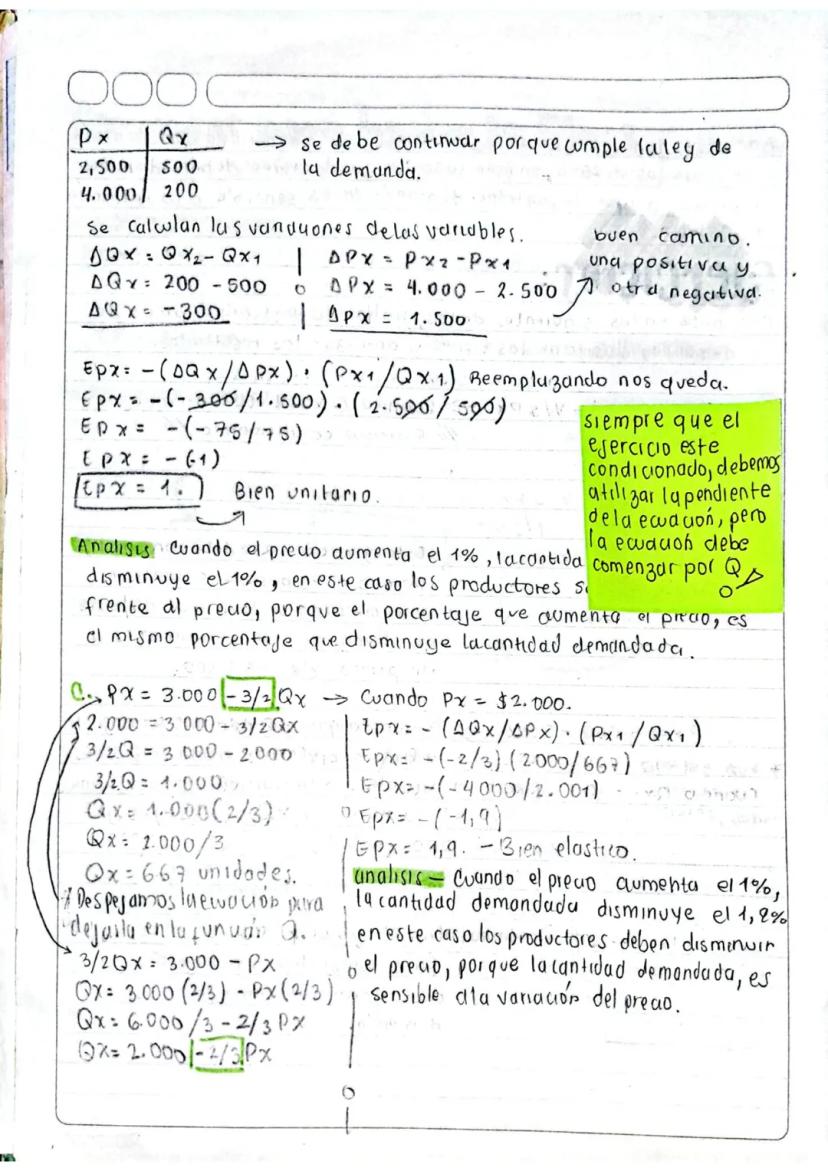 Px | Qx → se debe continuar porque cumple la ley de
2,500 | 500 la demanda.
4.000 | 200
Se calculan las variaciones de las variables.
buen camino.
una positiva y
otra negativa.
ΔQx = Qx2 - Qx1 | ΔPx = Px2 - Px1
ΔQx = 200 - 500 | ΔPx = 4.000 - 2.500
ΔQx = -300 | ΔPx = 1.500
Epx = -(ΔQx/ΔPx) · (Px1/Qx1) Reemplazando nos queda.
Epx = -(-300/1.500) · (2.500/500)
Epx = -(-75/75)
Epx = -(-1)
Epx = 1. Bien unitario.
siempre que el
ejercicio este
condicionado, debemos
utilizar la pendiente
de la ecuación, pero
la ecuación debe
comenzar por Q
Analisis Cuando el precio aumenta el 1%, la cantida
disminuye el 1%, en este caso los productores s
frente al precio, porque el porcentaje que aumenta el precio, es
el mismo porcentaje que disminuye la cantidad demandada.
C. Px = 3.000 - 3/2 Qx → Cuando Px = $2.000.
2.000 = 3 000 - 3/2Qx
3/2Q = 3 000 - 2000
3/2Q = 1.000
Qx = 1.000(2/3)
Qx = 2.000/3
Qx = 667 unidades.
* Despejamos la ecuación para
dejarla en la función Q.
3/2Qx = 3.000 - Px
Qx = 3 000(2/3) - Px(2/3)
Qx = 6.000/3 - 2/3 Px
Qx = 2.000 - 2/3 Px
Epx = -(ΔQx/ΔPx) · (Px1/Qx1)
Epx = -(-2/3)(2000/667)
Epx = -(-4000/2.001)
Epx = -(-1,9)
Epx = 1,9. - Bien elastico.
analisis = Cuando el precio aumenta el 1%,
la cantidad demandada disminuye el 1,9%
en este caso los productores deben disminuir
el precio, porque la cantidad demandada, es
sensible a la variación del precio.